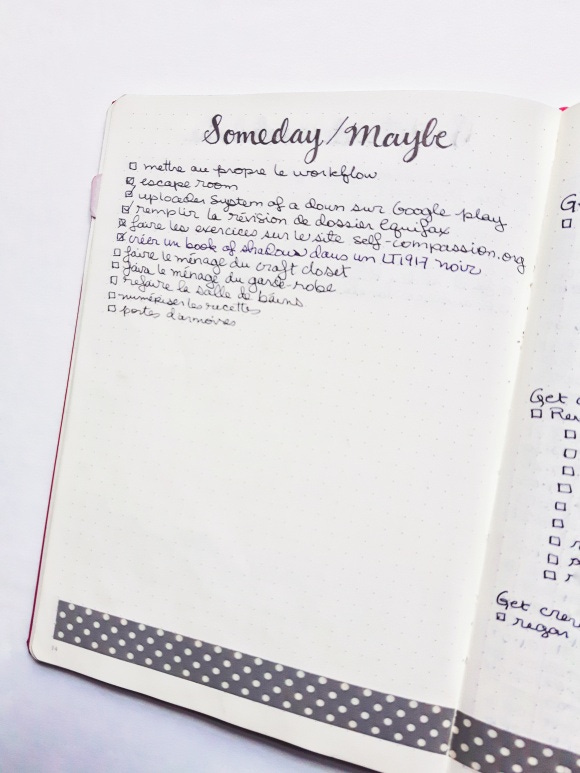 Someday/Maybe
☐ mettre au propre le workflow
☑ escape room
☑ uploader System of a down sur Google play
☑ remplir la révision de dossier Equifax
☒ faire les exercices sur le site self-compassion.org
☒ créer un book of shadows dans un LT1917 noir
☐ faire le ménage du craft closet
☐ faire le ménage du garde-robe
☐ refaire la salle de bains
☐ numériser les recettes
☐ portes d'armoires
G
☐
Get
☐ Re
☐
☐
☐
☐
☐
☐
☐
☐
☐ r
Get
☒ regar